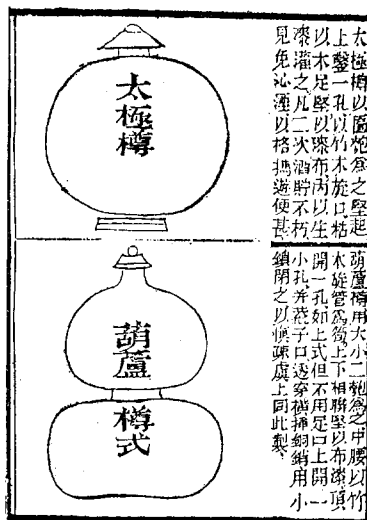 太極樽以匾匏爲之堅起
上鑿一孔以竹木旋口格
以木足堅以漆布內以生
漆灌之凡二次酒貯不朽
見免沁湮以格携遊便甚
太極樽
葫蘆樽用大小二匏爲之中腰以竹
木旋管爲筍上下相聯堅以布漆頂
開一孔如上式但不用足口上開一
小孔并燕子口透穿橫插銅銷用小
鎖閉之以愼疎虞上同此製
葫蘆樽式